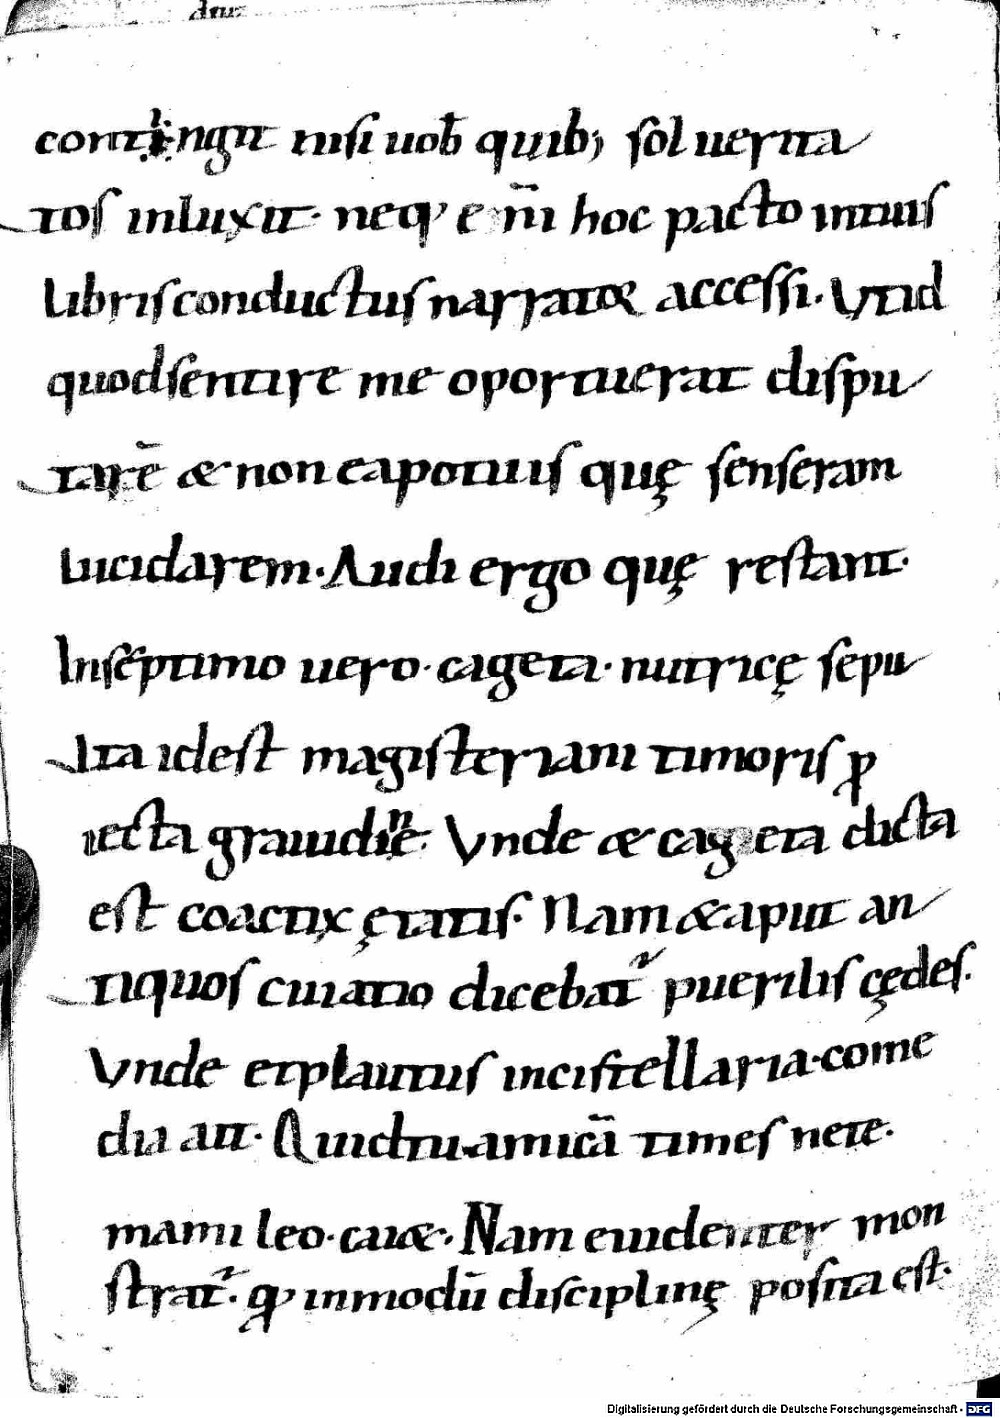 contingit nisi uob̄ quib; sol uerita
tos inluxit· neq' e n̄i hoc pacto in tuis
libris conductus narrator accessi. Vt id
quod sentire me oportuerat dispu
tarē & non ea potuis quę senseram
lucidarem· Audi ergo quę restant·
In septimo uero· cageta· nutricę sepu
lta id est magisteriani timoris p
iecta grauidine· Vnde & cageta dicta
est coactix ętatis· Nam & aput an
tiquos cuiatio dicebat puerilis cędes.
Vnde et plautus in cistellaria· come
dia ait· Quid tu amicā times ne te·
mami leo· cauæ·. Nam euidenter mon
strat. q' in modū disciplinę posita est·
Digitalisierung gefördert durch die Deutsche Forschungsgemeinschaft - DFG